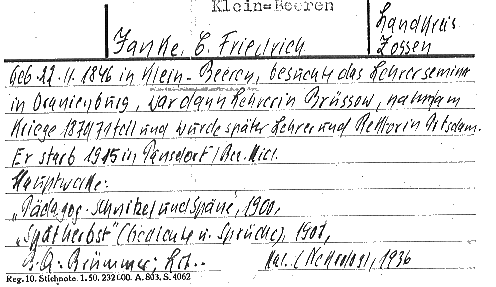 Klein=Beeren
Landkreis
Janke, E. Friedrich
Zossen
Geb 22. 11. 1846 in Klein-Beeren, besuchte das Lehrerseminar
in Oranienburg, war dann Lehrer in Brüssow, nahm am
Kriege 1870/71 teil und wurde später Lehrer und Rektor in Potsdam.
Er starb 1915 in Pansdorf / Bez.
Hauptwerke:
„Pädagog. Schnitzel und Späne", 1900,
„Spätherbst" (Gedichte u. Sprüche), 1901,
Brümmer,
(Nekrolog), 1936
Reg. 10. Stichnote. 1. 50. 232000. A. 803. S. 4062